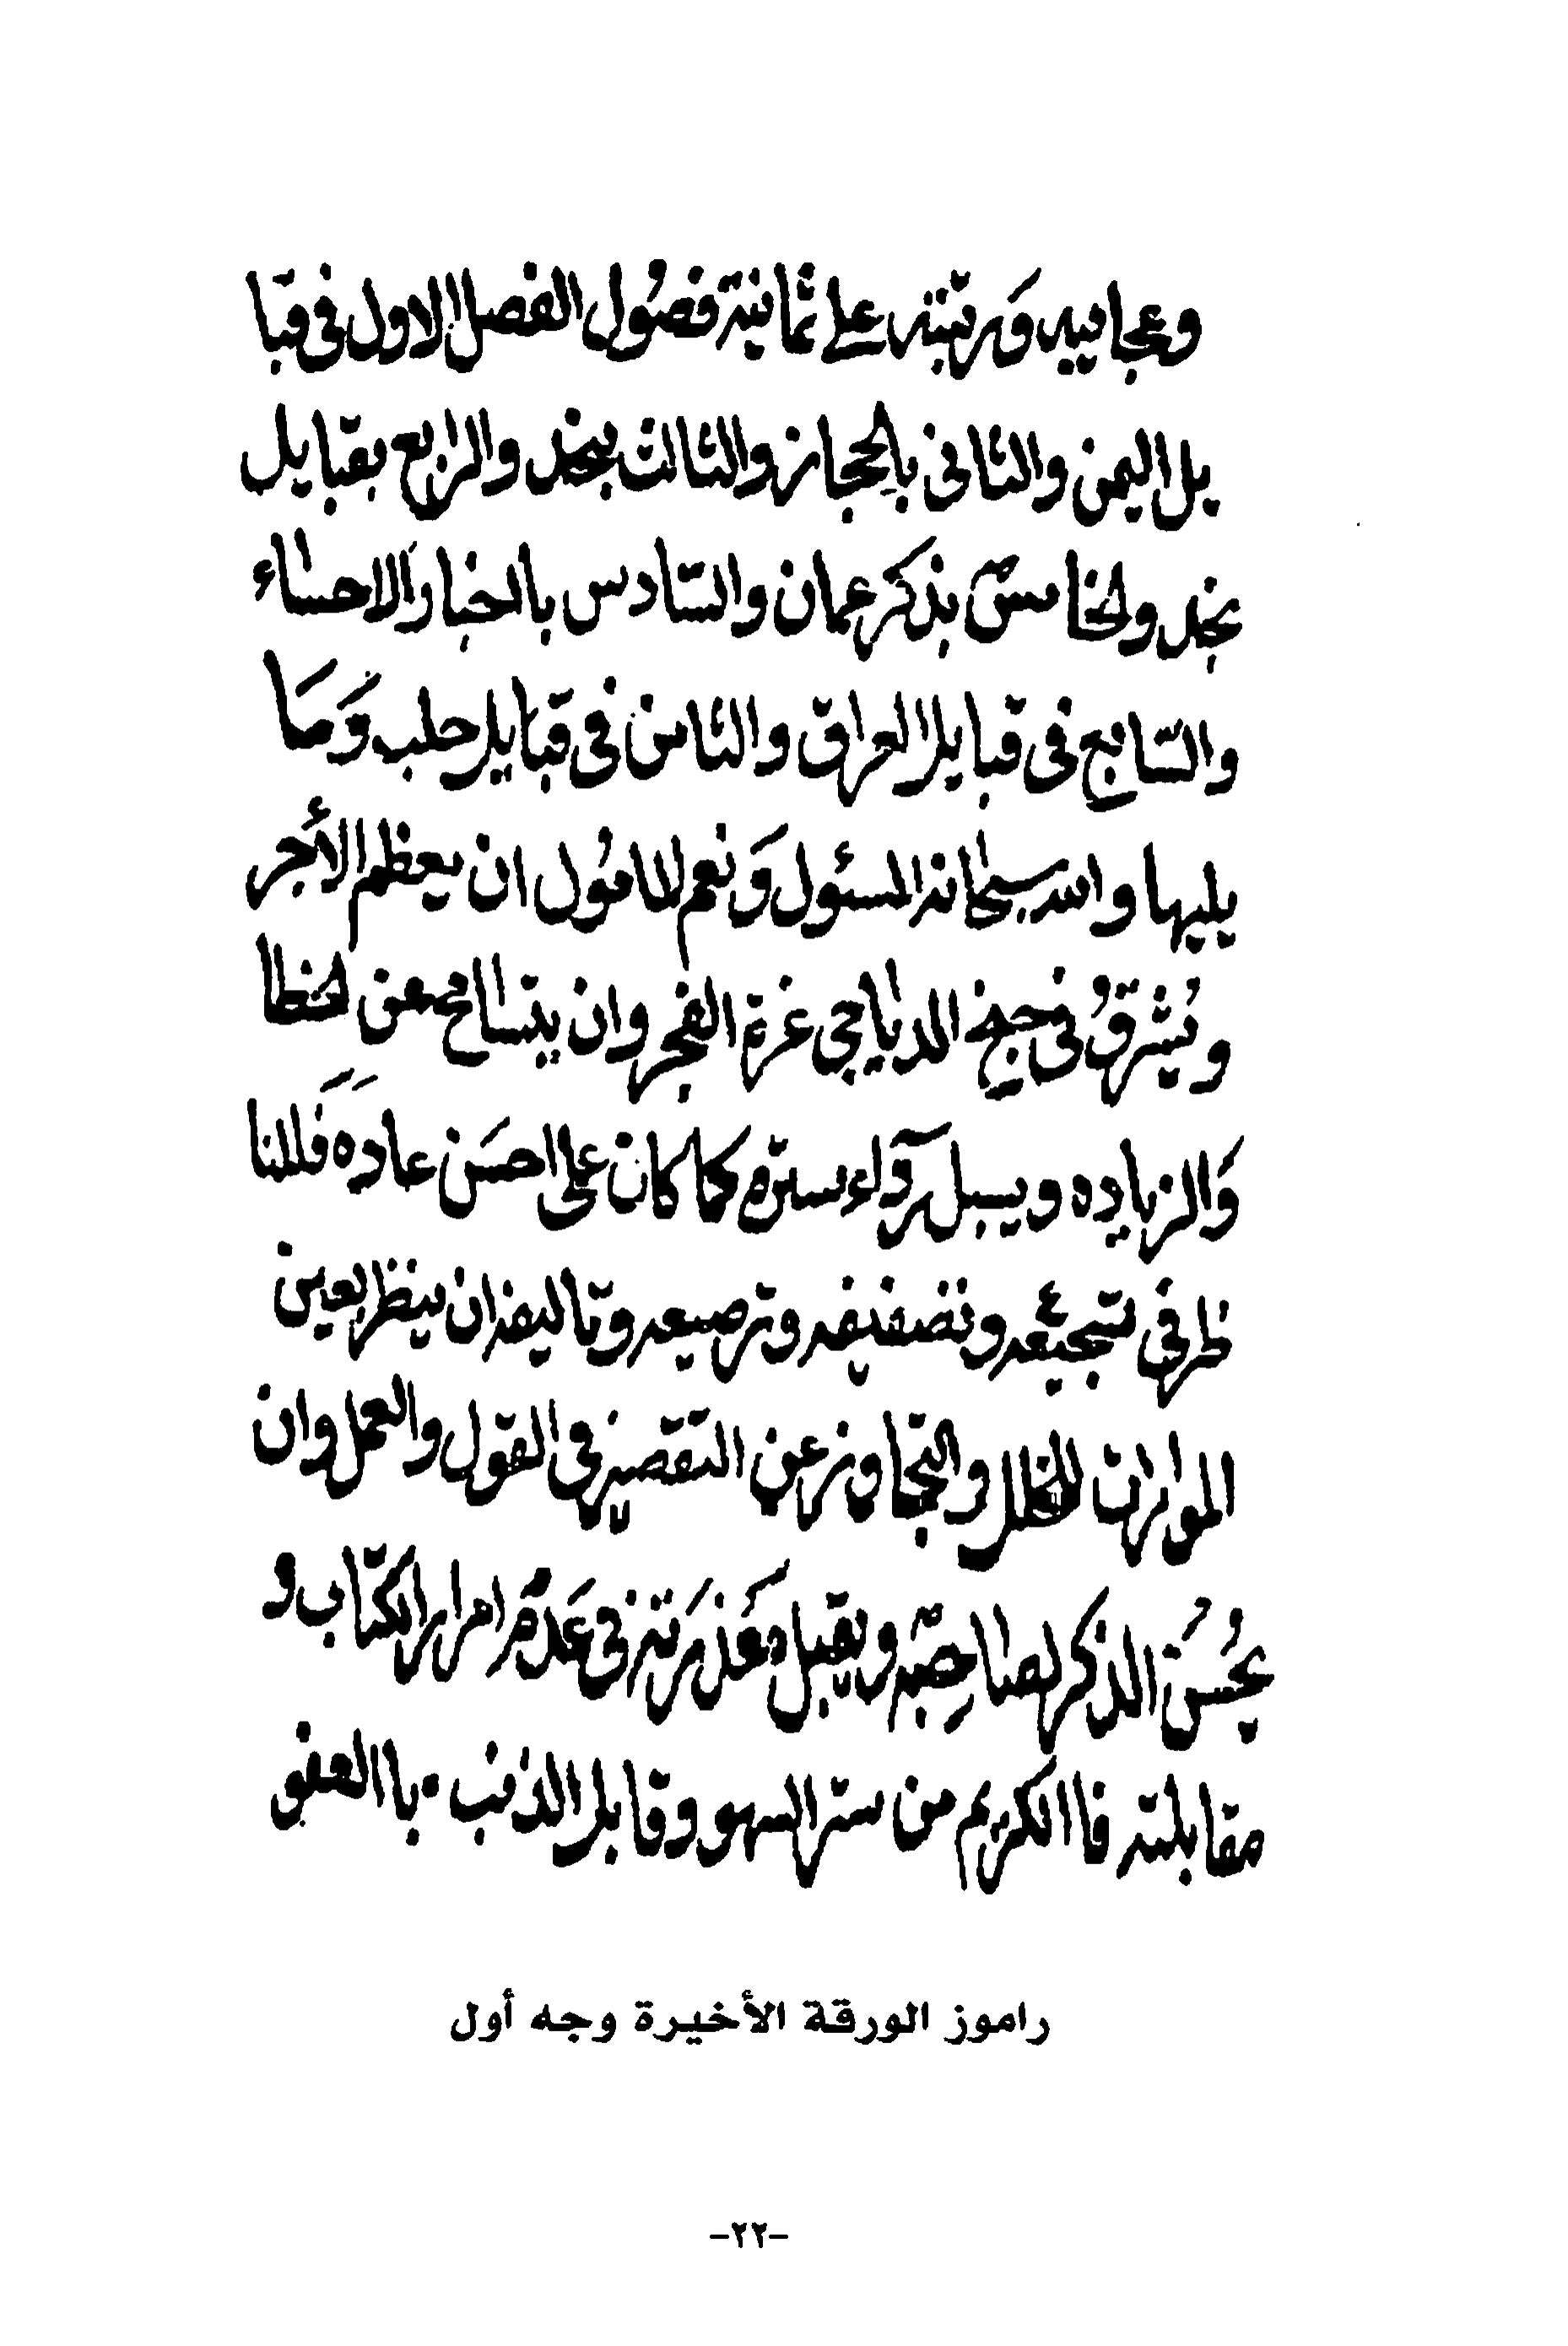 وعجاييه وَرتبته على ثمانية فصُول الفصل الاول في قبا
يل اليمن والثاني بالحجاز والثالث بنجد والرابع بقبايل
نجد والخامسّ بذكر عمان والسّادس باالخبار الاحساء
والسّابع في قبايل العراق والثامن في قبايل حلب وَمَا
يليها والله سبحانه المسئول وَنعم المامُول ان يعظم الأجر
ويُشرقُ في الدياجي غرة الفجر وان يتسامح عن الخطا
وَالزياده ويسبل ردآء ستره كما كان على احسَن عادَه فَللنا
ظر في تجيعه وتصفيفه وترصيعه وتاليفه ان ينظر بعين
الموازن للخلل والتجاوز عن التقصير في القول والعمل وان
يحُسُن الذكر لصاحِبّه ويقبل مَعذرَته في عَدم امرار الكتاب و
مقابلته فاالكريم من ستر السهو وقابل الذنب باالعفو
راموز الورقة الأخيرة وجه أول
-٢٢-